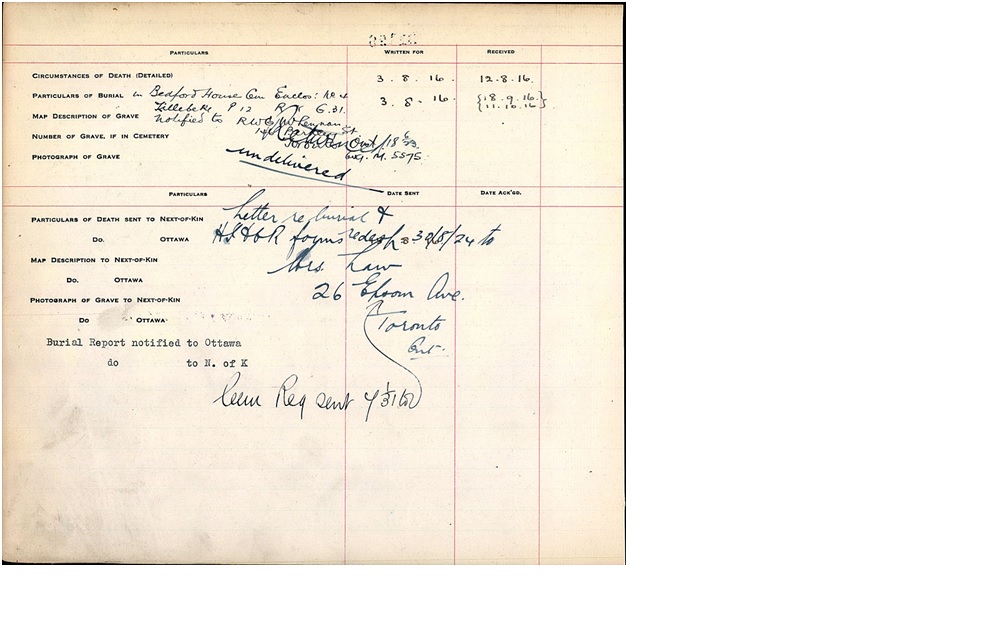 PARTICULARS WRITTEN FOR RECEIVED
CIRCUMSTANCES OF DEATH (DETAILED) 3. 8. 16. 12.8.16.
PARTICULARS OF BURIAL in Bedford House Cem Enclos: No 4 3. 8. 16. {18.9.16.}
Zillebeke P 12 R G.31. {11.10.16}
MAP DESCRIPTION OF GRAVE notified to
NUMBER OF GRAVE, IF IN CEMETERY
PHOTOGRAPH OF GRAVE M. 5575
undelivered
PARTICULARS DATE SENT DATE ACK'GD.
PARTICULARS OF DEATH SENT TO NEXT-OF-KIN Letter re burial &
DO. OTTAWA forms to
MAP DESCRIPTION TO NEXT-OF-KIN Mrs. Law
DO. OTTAWA 26 Epsom Ave.
PHOTOGRAPH OF GRAVE TO NEXT-OF-KIN
DO OTTAWA Toronto
Burial Report notified to Ottawa Ont.
do to N. of K
Reg sent